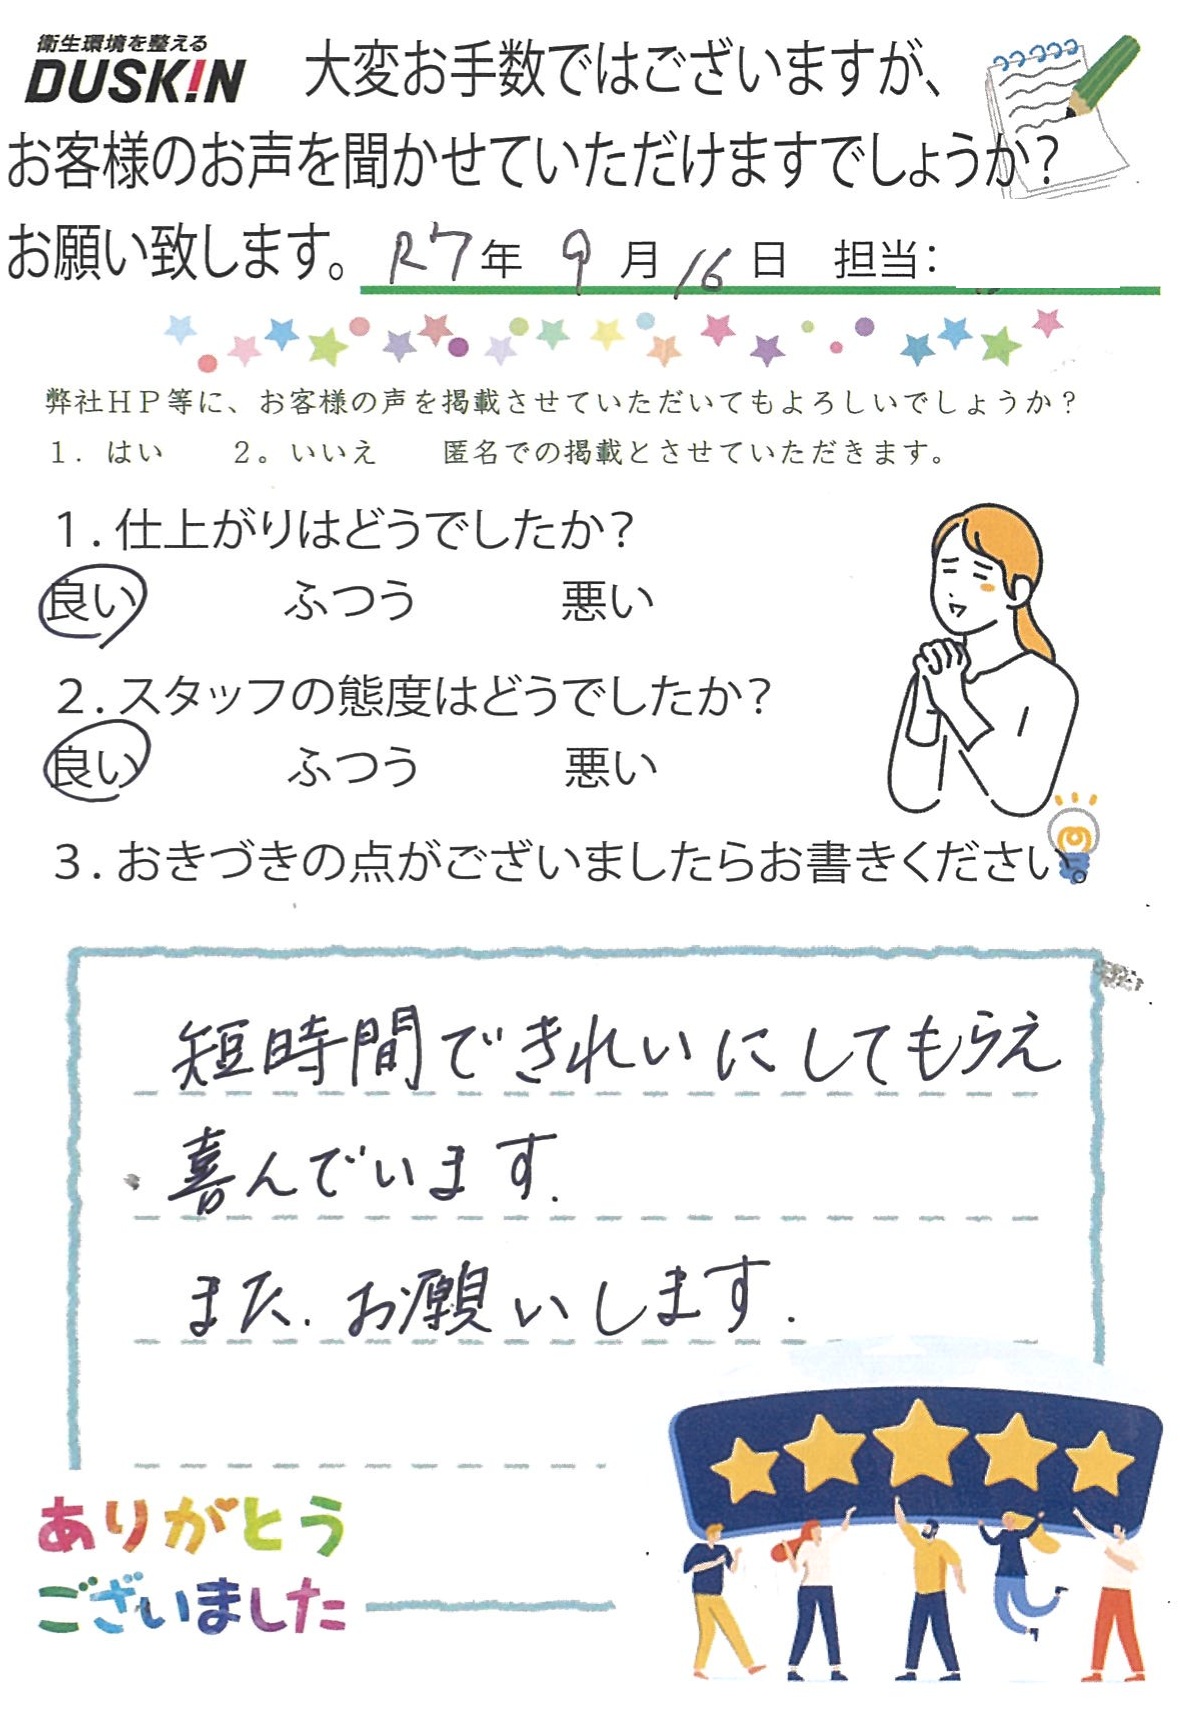 衛生環境を整える
DUSKIN
大変お手数ではございますが、
お客様のお声を聞かせていただけますでしょうか？
お願い致します。 R7年 9月 16日 担当：
弊社ＨＰ等に、お客様の声を掲載させていただいてもよろしいでしょうか？
１．はい　２。いいえ　匿名での掲載とさせていただきます。
１．仕上がりはどうでしたか？
良い　ふつう　悪い
２．スタッフの態度はどうでしたか？
良い　ふつう　悪い
３．おきづきの点がございましたらお書きください。
短時間できれいにしてもらえ
喜んでいます.
また. お願いします.
ありがとう
ございました